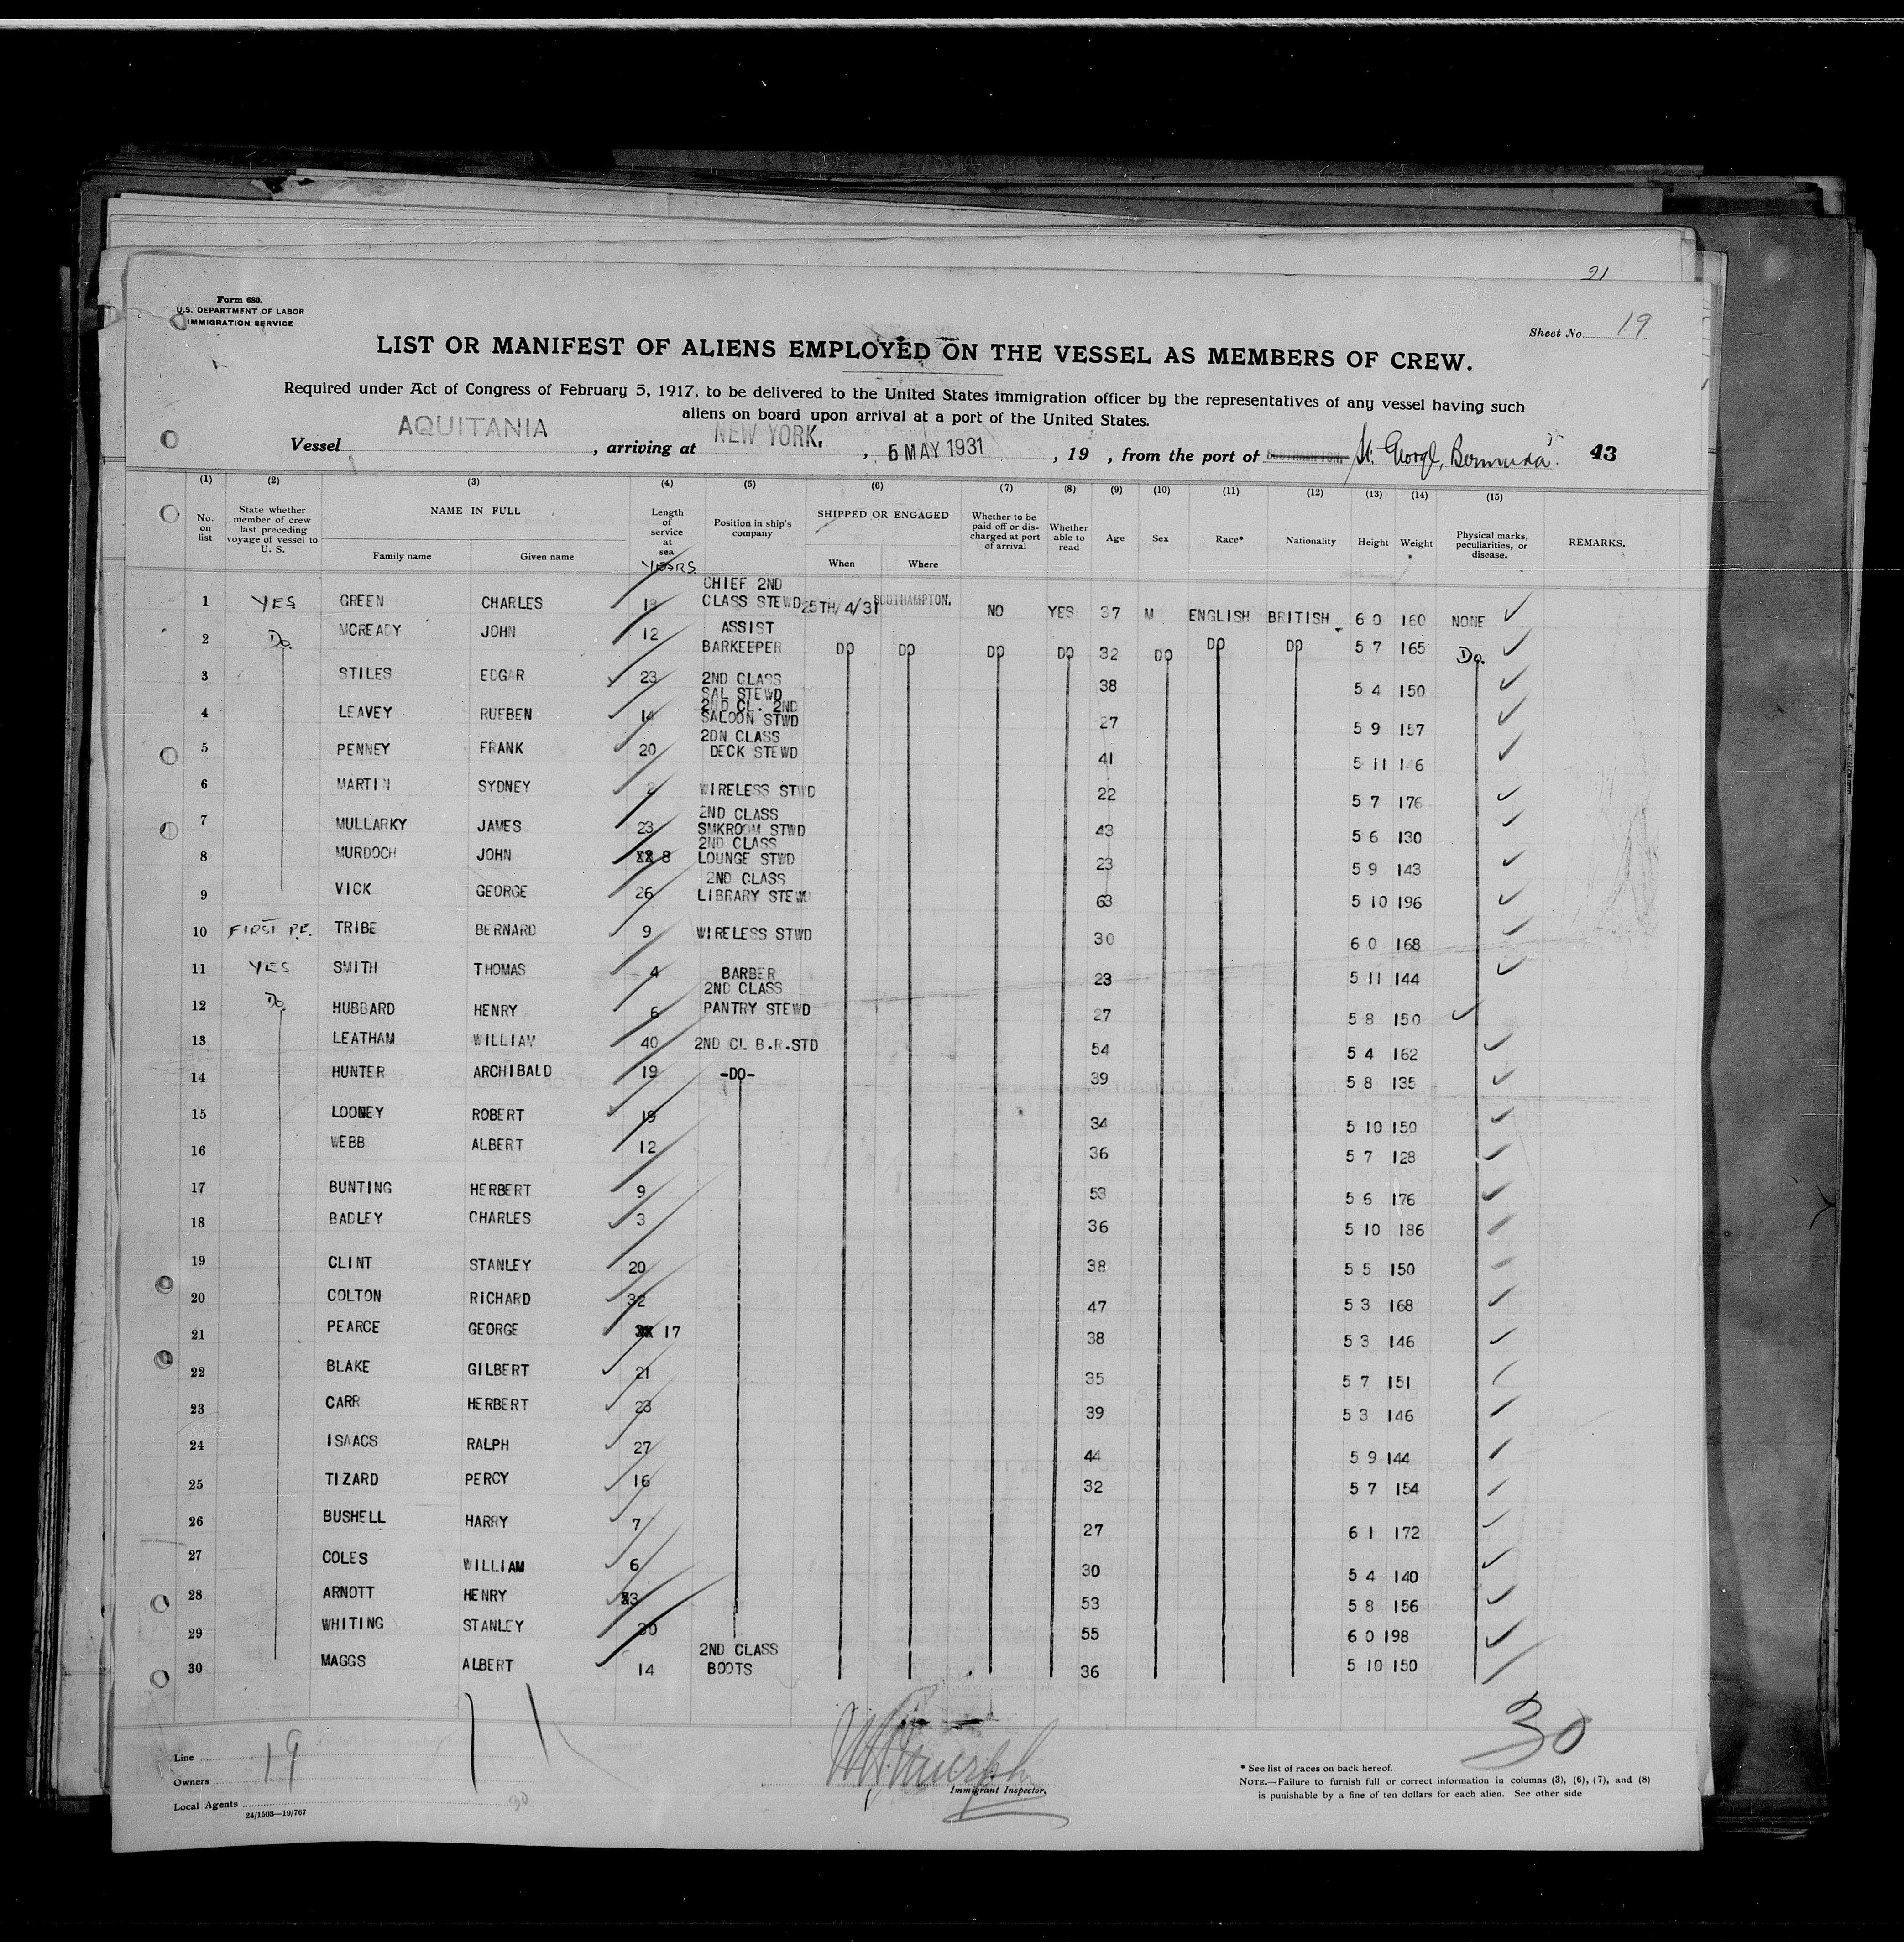 21
Form 680.
U.S. DEPARTMENT OF LABOR
IMMIGRATION SERVICE
Sheet No. 19
LIST OR MANIFEST OF ALIENS EMPLOYED ON THE VESSEL AS MEMBERS OF CREW.
Required under Act of Congress of February 5, 1917, to be delivered to the United States immigration officer by the representatives of any vessel having such
aliens on board upon arrival at a port of the United States.
Vessel AQUITANIA, arriving at NEW YORK., 6 MAY 1931, 19 , from the port of SOUTHAMPTON. St. George, Bermuda. 43
(1) (2) (3) (4) (5) (6) (7) (8) (9) (10) (11) (12) (13) (14) (15)
No. on list State whether member of crew last preceding voyage of vessel to U. S. NAME IN FULL Family name Given name Length of service at sea YEARS Position in ship's company SHIPPED OR ENGAGED When Where Whether to be paid off or discharged at port of arrival Whether able to read Age Sex Race* Nationality Height Weight Physical marks, peculiarities, or disease. REMARKS.
1 YES GREEN CHARLES CHIEF 2ND CLASS STEWD 25TH/4/31 SOUTHAMPTON. NO YES 37 M ENGLISH BRITISH 6 0 160 NONE
2 Do. MCREADY JOHN 12 ASSIST BARKEEPER DO DO DO DO 32 DO DO DO 5 7 165 Do.
3 STILES EDGAR 23 2ND CLASS SAL STEWD 38 5 4 150
4 LEAVEY RUEBEN 14 2ND CL. 2ND SALOON STWD 27 5 9 157
5 PENNEY FRANK 20 2DN CLASS DECK STEWD 41 5 11 146
6 MARTIN SYDNEY 2 WIRELESS STWD 22 5 7 176
7 MULLARKY JAMES 23 2ND CLASS SMKROOM STWD 43 5 6 130
8 MURDOCH JOHN 8 2ND CLASS LOUNGE STWD 23 5 9 143
9 VICK GEORGE 26 2ND CLASS LIBRARY STEWD 63 5 10 196
10 FIRST TRIBE BERNARD 9 WIRELESS STWD 30 6 0 168
11 YES SMITH THOMAS 4 BARBER 23 5 11 144
12 Do. HUBBARD HENRY 6 2ND CLASS PANTRY STEWD 27 5 8 150
13 LEATHAM WILLIAM 40 2ND CL B.R.STD 54 5 4 162
14 HUNTER ARCHIBALD 19 -DO- 39 5 8 135
15 LOONEY ROBERT 19 34 5 10 150
16 WEBB ALBERT 12 36 5 7 128
17 BUNTING HERBERT 9 53 5 6 176
18 BADLEY CHARLES 3 36 5 10 186
19 CLINT STANLEY 20 38 5 5 150
20 COLTON RICHARD 32 47 5 3 168
21 PEARCE GEORGE 17 38 5 3 146
22 BLAKE GILBERT 21 35 5 7 151
23 CARR HERBERT 23 39 5 3 146
24 ISAACS RALPH 27 44 5 9 144
25 TIZARD PERCY 16 32 5 7 154
26 BUSHELL HARRY 7 27 6 1 172
27 COLES WILLIAM 6 30 5 4 140
28 ARNOTT HENRY 53 5 8 156
29 WHITING STANLEY 30 55 6 0 198
30 MAGGS ALBERT 14 2ND CLASS BOOTS 36 5 10 150
30
Line
19
Owners
Local Agents
30
24/1503—19/767
Immigrant Inspector.
* See list of races on back hereof.
NOTE.—Failure to furnish full or correct information in columns (3), (6), (7), and (8)
is punishable by a fine of ten dollars for each alien. See other side